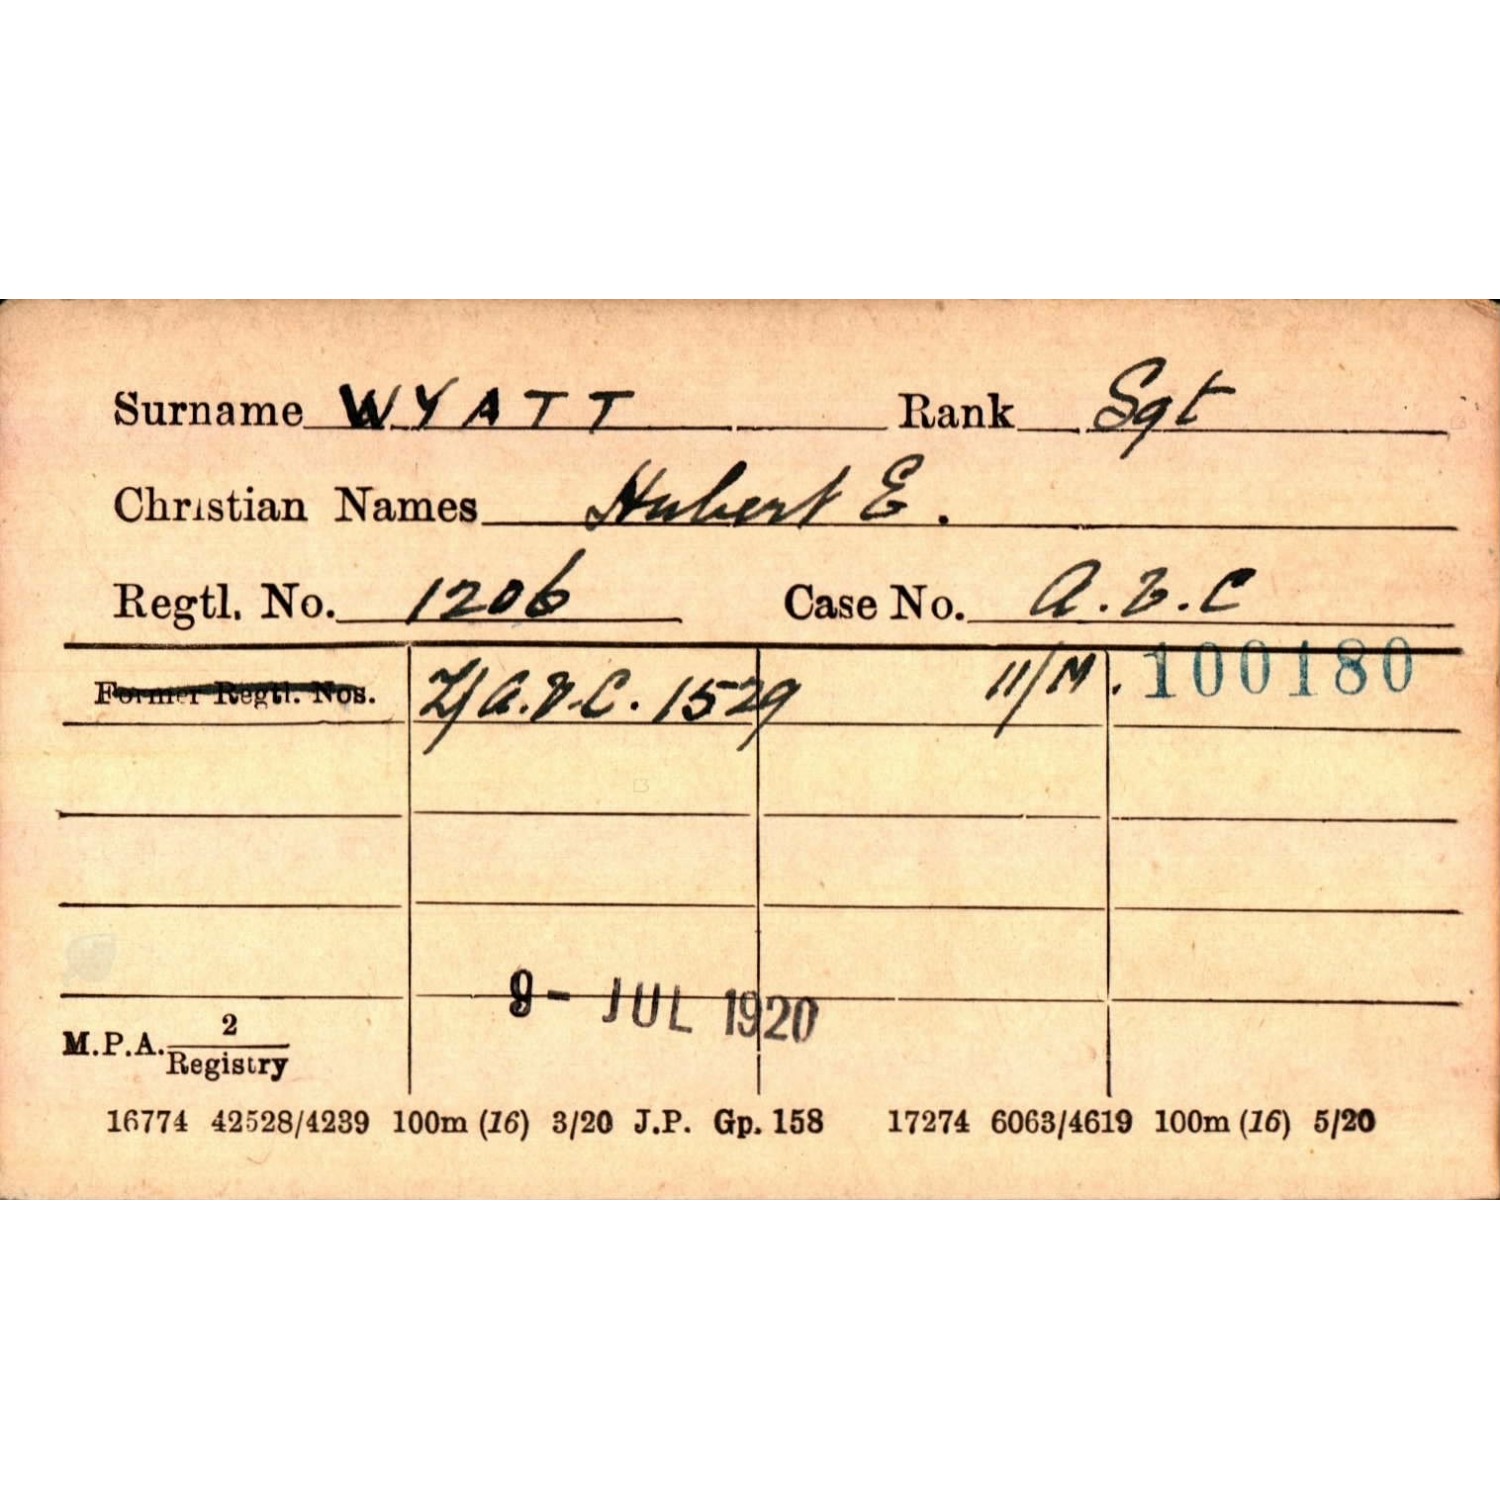 Surname WYATT Rank Sgt
Christian Names Hubert E.
Regtl. No. 1206 Case No. A.V.C
Former Regtl. Nos. Z/A.V.C. 1529 11/M. 100180
9- JUL 1920
M.P.A. 2
Registry
16774 42528/4239 100m (16) 3/20 J.P. Gp. 158 17274 6063/4619 100m (16) 5/20